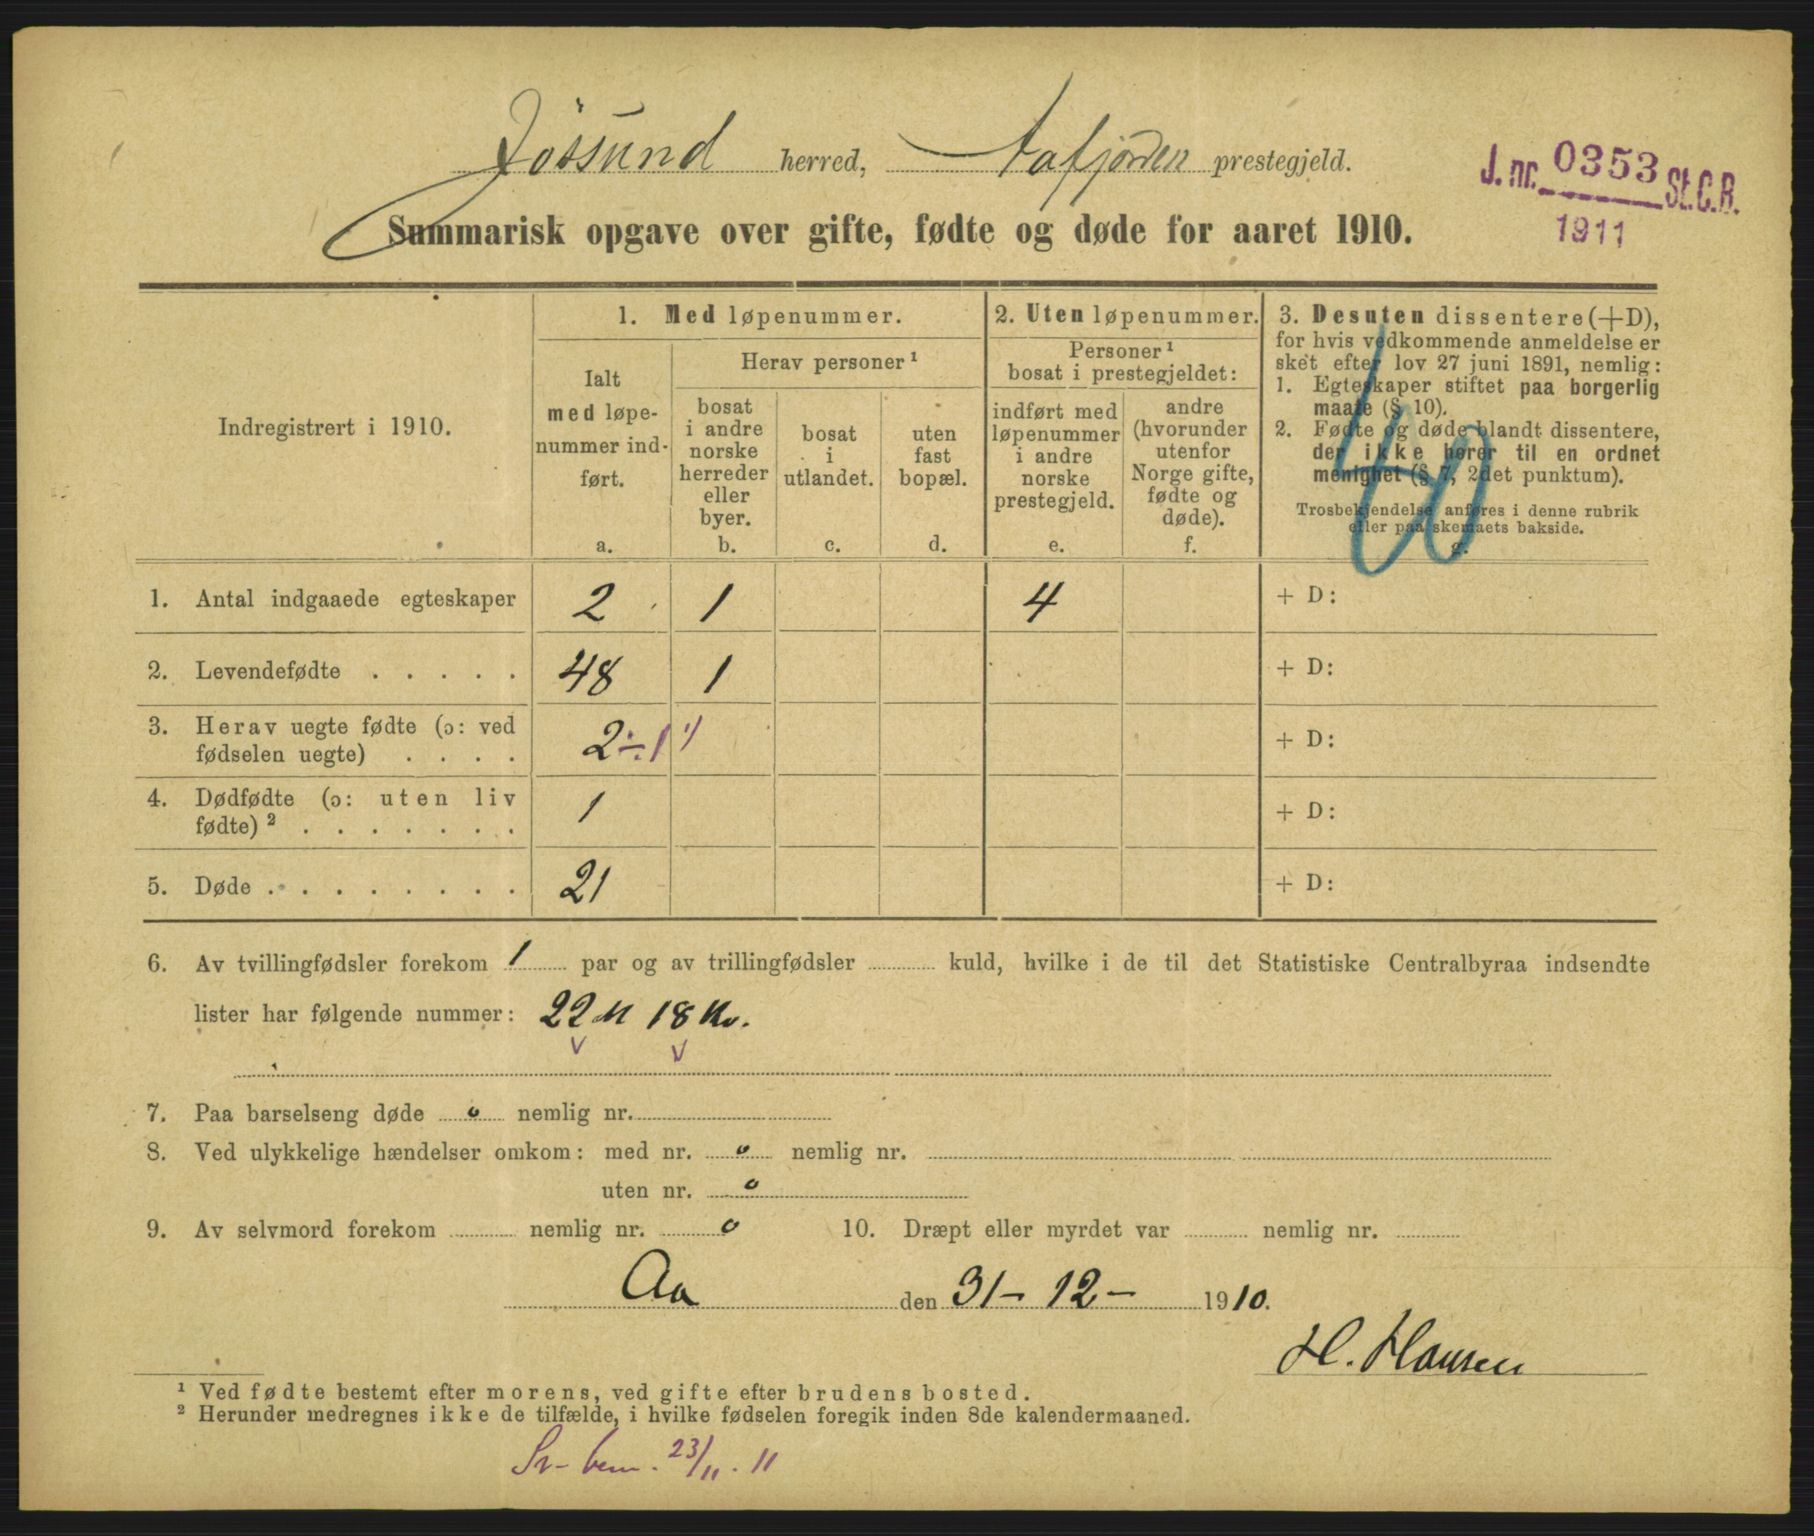 Jössund herred, Aafjorden prestegjeld.
J. nr. 0353 St. C. B.
1911
Summarisk opgave over gifte, fødte og døde for aaret 1910.
Indregistrert i 1910.
1. Med løpenummer.
Ialt
med løpe-
nummer ind-
ført.
a.
Herav personer ¹
bosat
i andre
norske
herreder
eller
byer.
b.
bosat
i
utlandet.
c.
uten
fast
bopæl.
d.
2. Uten løpenummer.
Personer ¹
bosat i prestegjeldet:
indført med
løpenummer
i andre
norske
prestegjeld.
e.
andre
(hvorunder
utenfor
Norge gifte,
fødte og
døde).
f.
3. Desuten dissentere (+D),
for hvis vedkommende anmeldelse er
sket efter lov 27 juni 1891, nemlig:
1. Egteskaper stiftet paa borgerlig
maate (§ 10).
2. Fødte og døde blandt dissentere,
der ikke hører til en ordnet
menighet (§ 7, 2det punktum).
Trosbekjendelse anføres i denne rubrik
eller paa skemaets bakside.
g.
1. Antal indgaaede egteskaper 2 1 4 + D:
2. Levendefødte . . . . . 48 1 + D:
3. Herav uegte fødte (ɔ: ved
fødselen uegte) . . . . 2 ÷ 1 ¹) + D:
4. Dødfødte (ɔ: uten liv
fødte) ² . . . . . . . 1 + D:
5. Døde . . . . . . . . 21 + D:
6. Av tvillingfødsler forekom 1 par og av trillingfødsler kuld, hvilke i de til det Statistiske Centralbyraa indsendte
lister har følgende nummer: 22 M 18 Kv.
7. Paa barselseng døde 0 nemlig nr.
8. Ved ulykkelige hændelser omkom: med nr. 0 nemlig nr.
uten nr. 0
9. Av selvmord forekom nemlig nr. 0 10. Dræpt eller myrdet var nemlig nr.
Aa den 31 – 12 – 1910.
H. Hansen
¹ Ved fødte bestemt efter morens, ved gifte efter brudens bosted.
² Herunder medregnes ikke de tilfælde, i hvilke fødselen foregik inden 8de kalendermaaned.
23/11. 11